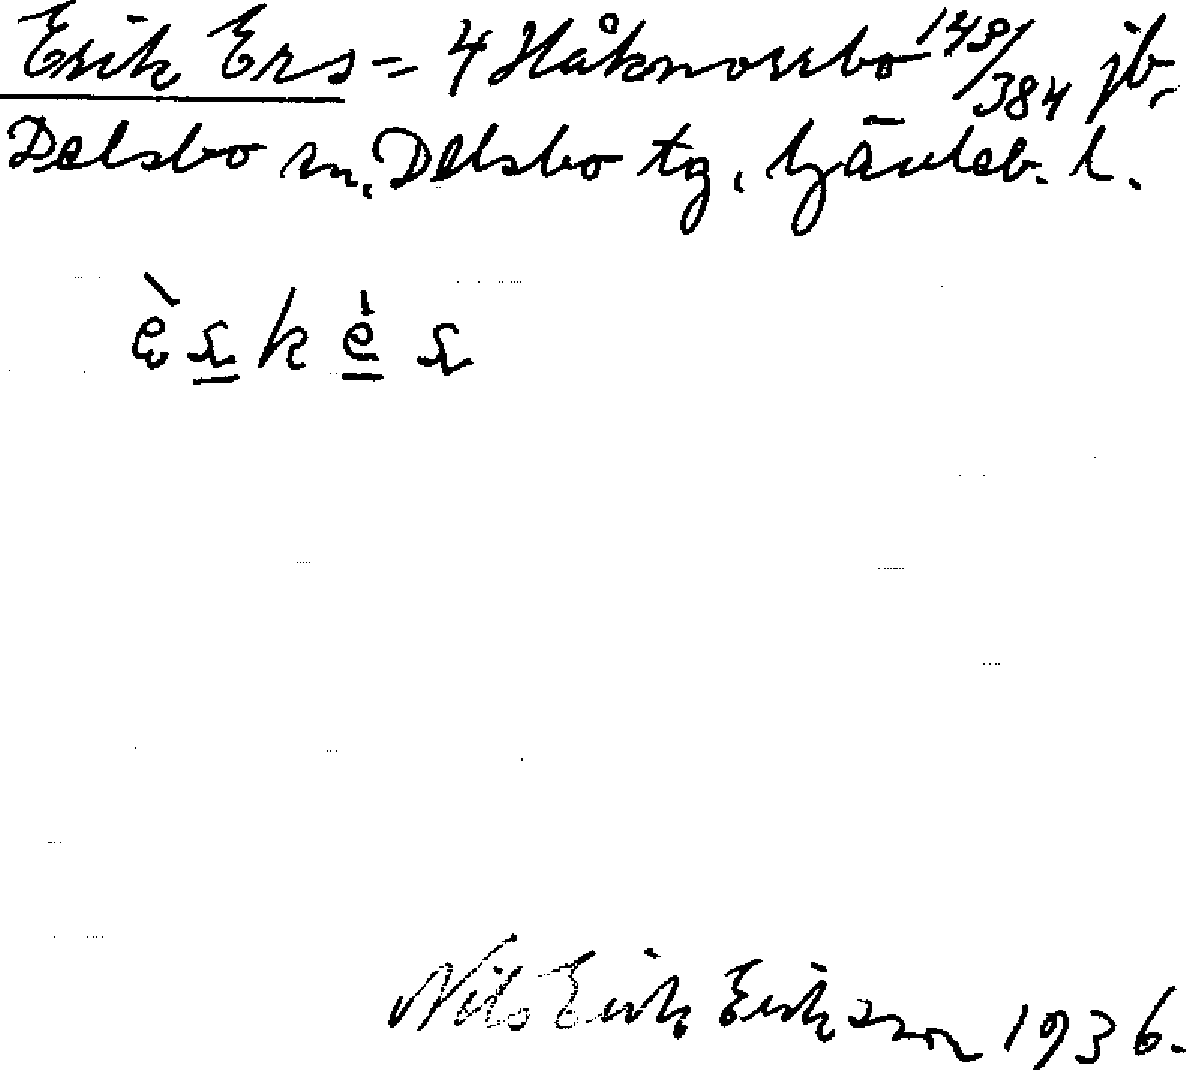 Erik Ers= 4 Håknorrbo 148/384 jb,
Delsbo sn, Delsbo tg, Gävleb. l.
Nils Erik Erikson 1936.